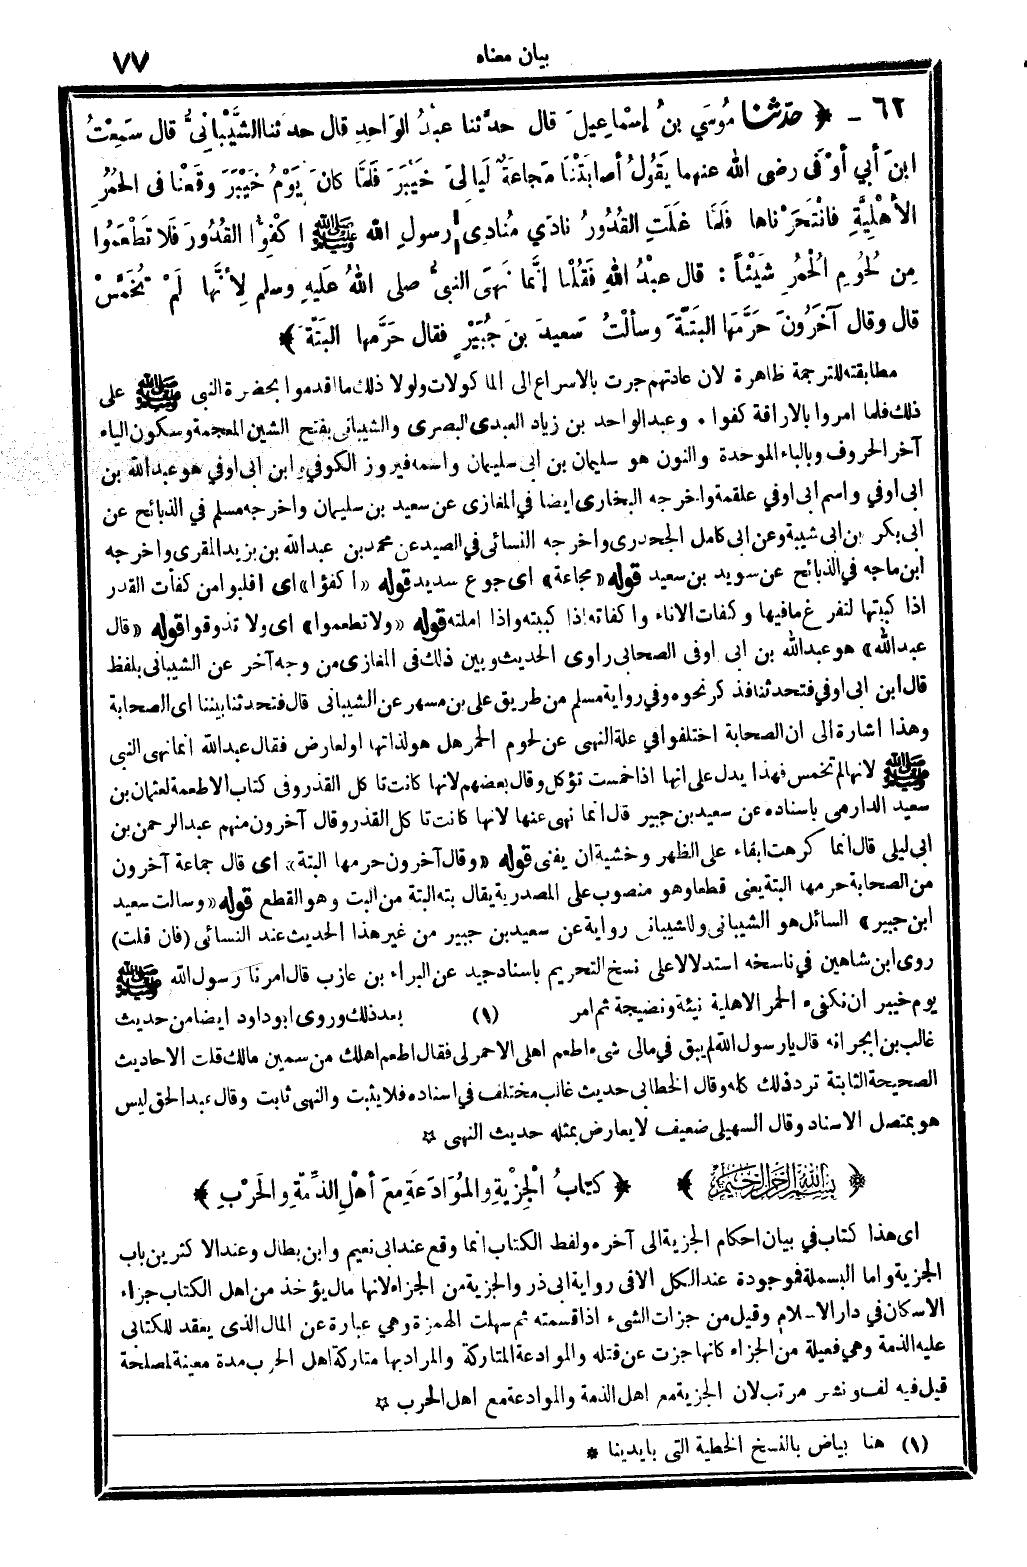 بيان معناه
٧٧
٦٢ ـ ﴿ حَدَّثنا مُوسَي بنُ إسْماعِيلَ قال حدَّثنا عبْدُ الوَاحِدِ قال حدثنا الشَّيْبانِيُّ قال سَمِعْتُ
ابنَ أبي أوْفَى رضى الله عنهما يَقُولُ أصابَتْنا مَجاعَةٌ لَيالِيَ خَيْبَرَ فَلَمَّا كانَ يَوْمُ خَيْبَرَ وقَعْنا فى الحُمُرِ
الأهْلِيَّةِ فانْتَحَرْناها فَلَمَّا غَلَتِ القُدُورُ نادَي مُنادِى رسولِ الله ﷺ اكْفِؤُا القُدُورَ فَلا تَطْعَمُوا
مِن لُحُومِ الحُمُرِ شَيْئاً : قال عبْدُ اللهِ فَقُلْنا إنَّما نَهَى النبىُّ صلى اللهُ عَلَيهِ وسلم لِأنَّها لَمْ تُخَمَّسْ
قال وقال آخَرُونَ حَرَّمَها البَتَّةَ وسألْتُ سَعيدَ بنَ جُبَيْرٍ فقال حَرَّمها البَتَّةَ ﴾
مطابقته للترجمة ظاهرة لان عادتهم جرت بالاسراع الى الماكولات ولولا ذلك ما اقدموا بحضرة النبى ﷺ على
ذلك فلما امروا بالاراقة كفوا . وعبد الواحد بن زياد العبدى البصرى والشيبانى بفتح الشين المعجمة وسكون الياء
آخر الحروف وبالباء الموحدة والنون هو سليمان بن ابى سليمان واسمه فيروز الكوفي وابن ابى اوفي هو عبد الله بن
ابى اوفي واسم ابى اوفي علقمة واخرجه البخارى ايضا في المغازى عن سعيد بن سليمان واخرجه مسلم في الذبائح عن
ابى بكر بن ابى شيبة وعن ابى كامل الجحدرى واخرجه النسائى في الصيد عن محمد بن عبد الله بن يزيد المقرى واخرجه
ابن ماجه في الذبائح عن سويد بن سعيد قوله «مجاعة» اى جوع سديد قوله «اكفؤا» اى اقلبوا من كفأت القدر
اذا كببتها لنفرغ ما فيها وكفات الاناء واكفاته اذا كببته واذا املته قوله «ولا تطعموا» اى ولا تذوقوا قوله «قال
عبد الله» هو عبد الله بن ابى اوفى الصحابى راوى الحديث وبين ذلك فى المغازى من وجه آخر عن الشيبانى بلفظ
قال ابن ابى اوفي فتحدثنا فذكر نحوه وفي رواية مسلم من طريق على بن مسهر عن الشيبانى قال فتحدثنا بيننا اى الصحابة
وهذا اشارة الى ان الصحابة اختلفوا في علة النهى عن لحوم الحمر هل هو لذاتها او لعارض فقال عبد الله انما نهى النبى
ﷺ لانها لم تخمس فهذا يدل على انها اذا خمست تؤكل وقال بعضهم لانها كانت تاكل القذر وفى كتاب الاطعمة لعثمان بن
سعيد الدارمى باسناده عن سعيد بن جبير قال انما نهى عنها لانها كانت تاكل القذر وقال آخرون منهم عبد الرحمن بن
ابى ليلى قال انما كرهت ابقاء على الظهر وخشية ان يفنى قوله «وقال آخرون حرمها البتة» اى قال جماعة آخرون
من الصحابة حرمها البتة يعنى قطعا وهو منصوب على المصدرية يقال بته البتة من البت وهو القطع قوله «وسالت سعيد
ابن جبير» السائل هو الشيبانى وللشيبانى رواية عن سعيد بن جبير من غير هذا الحديث عند النسائى (فان قلت)
روى ابن شاهين في ناسخه استدلالا على نسخ التحريم باسناد جيد عن البراء بن عازب قال امرنا رسول الله ﷺ
يوم خيبر ان نكفىء الحمر الاهلية نيئة ونضيجة ثم امر (١) بعد ذلك وروى ابو داود ايضا من حديث
غالب بن ابجر انه قال يا رسول الله لم يبق في مالى شىء اطعم اهلى الا حمر لى فقال اطعم اهلك من سمين مالك قلت الاحاديث
الصحيحة الثابتة ترد ذلك كله وقال الخطابى حديث غالب مختلف في اسناده فلا يثبت والنهى ثابت وقال عبد الحق ليس
هو بمتصل الاسناد وقال السهيلى ضعيف لا يعارض بمثله حديث النهى ☆
﴿ بسم الله الرحمن الرحيم ﴾ ﴿ كتابُ الجِزْيةِ والمُوَادَعَةِ معَ أهْلِ الذِّمَّةِ والحَرْبِ ﴾
اى هذا كتاب في بيان احكام الجزية الى آخره ولفظ الكتاب انما وقع عند ابى نعيم وابن بطال وعند الاكثرين باب
الجزية واما البسملة فموجودة عند الكل الا فى رواية ابى ذر والجزية من الجزاء لانها مال يؤخذ من اهل الكتاب جزاء
الاسكان في دار الاسلام وقيل من جزات الشىء اذا قسمته ثم سهلت الهمزة وهي عبارة عن المال الذى يعقد للكتابى
عليه الذمة وهي فعيلة من الجزاء كانها جزت عن قتله والموادعة المتاركة والمراد بها متاركة اهل الحرب مدة معينة لمصلحة
قيل فيه لف ونشر مرتب لان الجزية مع اهل الذمة والموادعة مع اهل الحرب ☆
(١) هنا بياض بالنسخ الخطية التى بايدينا *